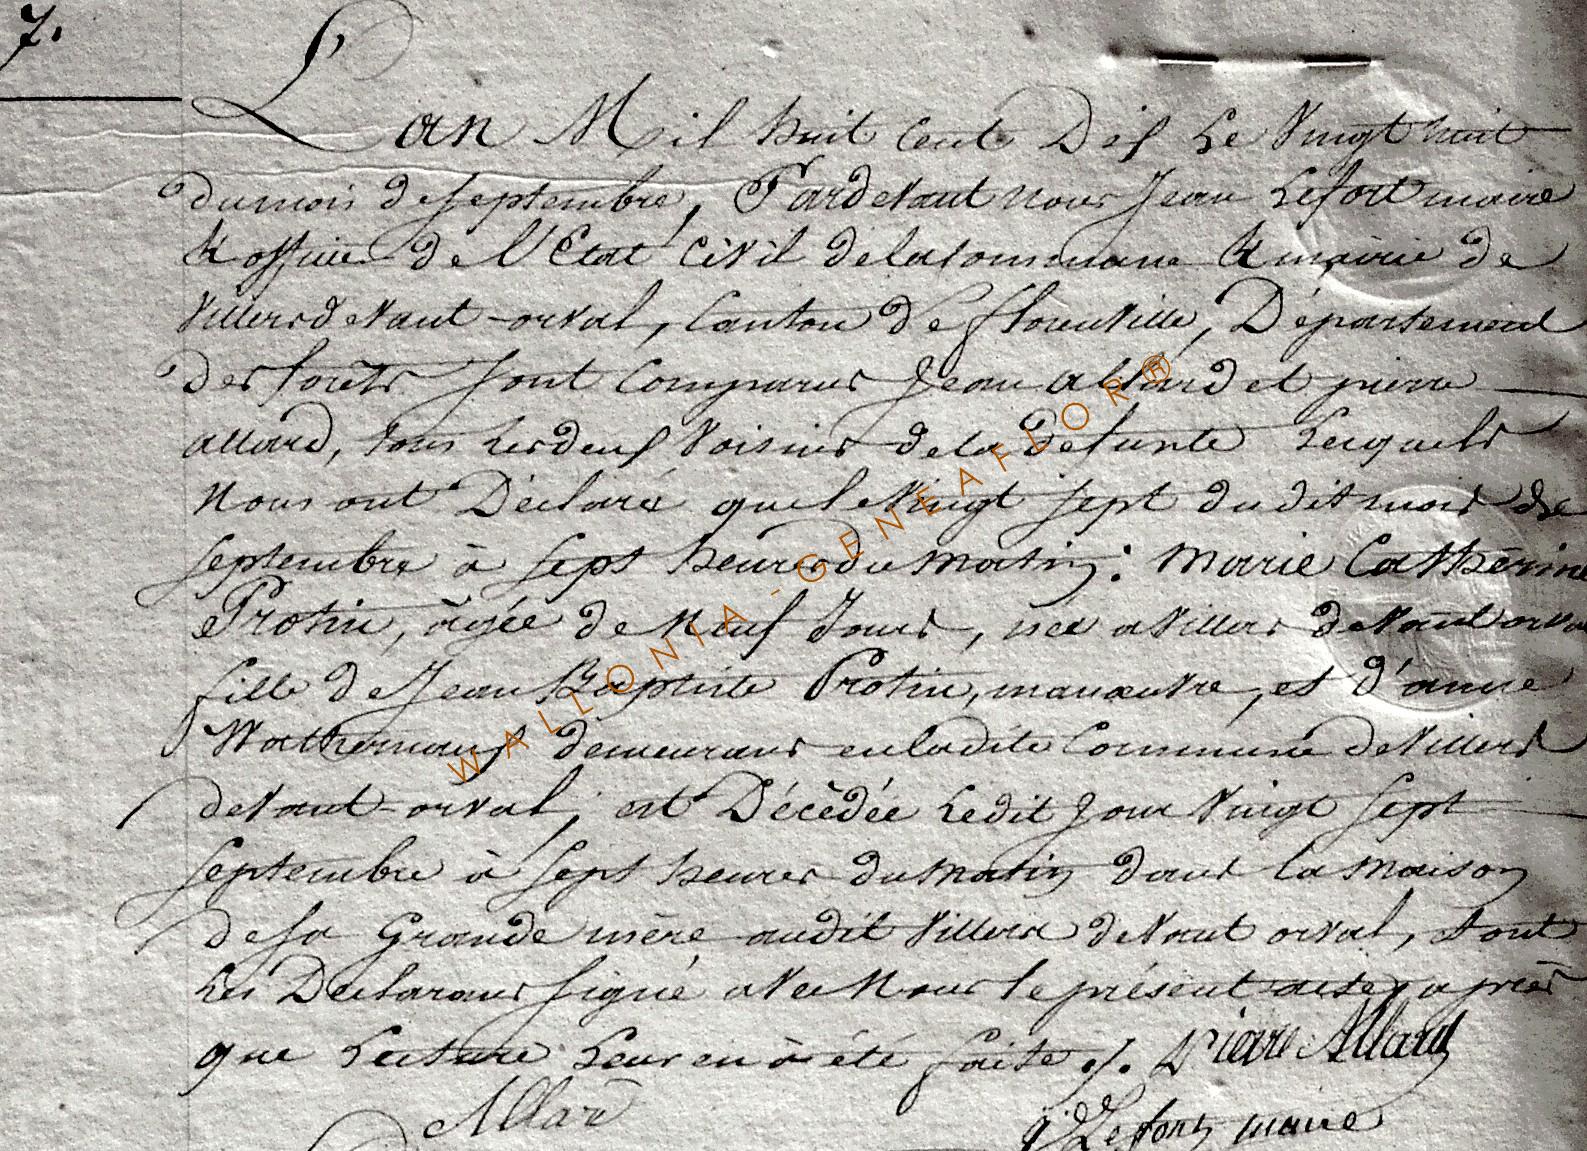 7.
L'an Mil huit Cent Dix le Vingt huit
du mois de septembre, Pardevant nous Jean Lefort maire
& officier de l'Etat Civil de la Commune & mairie de
Villers devant-orval, Canton de florenville, Département
des forêts sont Comparus Jean Allard et pierre
allard, tous les deux Voisins de la Defunte Lesquels
Nous ont Déclaré que le Vingt sept du dit mois de
septembre à sept heures du matin: Marie Catherine
Protin, agée de Neuf Jours, née a Villers deVant orval
fille de Jean Baptiste Protin, manœuvre, et d'anne
demeurans en ladite Commune de Villers
deVant-orval, est Décédée Ledit Jour Vingt sept
septembre à sept heures du Matin dans la Maison
de sa Grande mère audit Villers deVant orval, & ont
Les Declarans signé avec Nous le présent acte, après
que Lecture Leur en à été faite ./. Pierre Allard
Allard
J Lefort, maire
WALLONIA - GENEAFLOR®